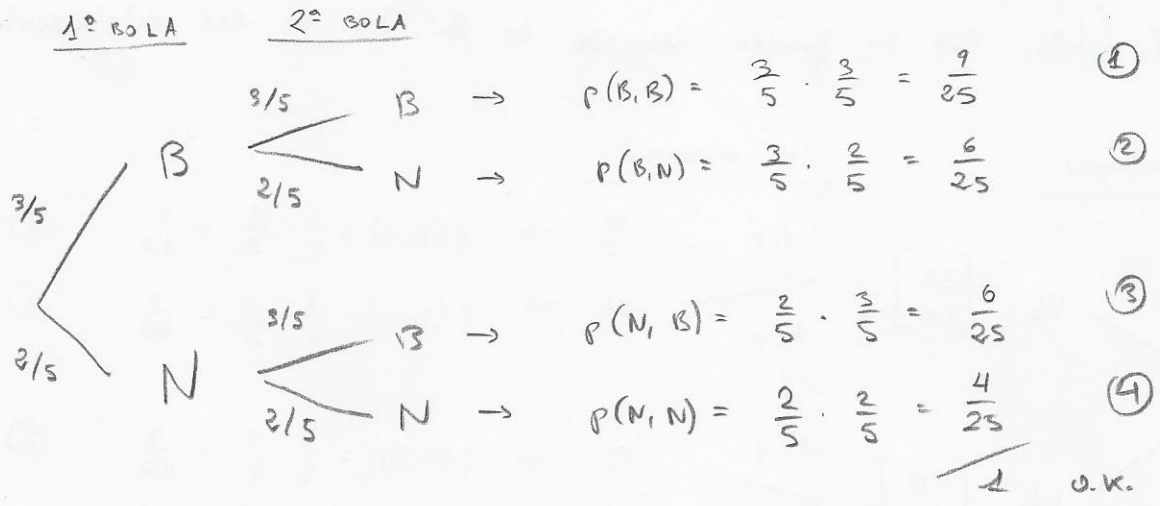 1ª BOLA 2ª BOLA
3/5 B → p(B,B) = 3/5 · 3/5 = 9/25 ①
B
2/5 N → p(B,N) = 3/5 · 2/5 = 6/25 ②
3/5
3/5 B → p(N, B) = 2/5 · 3/5 = 6/25 ③
2/5 N
2/5 N → p(N, N) = 2/5 · 2/5 = 4/25 ④
1 O.K.